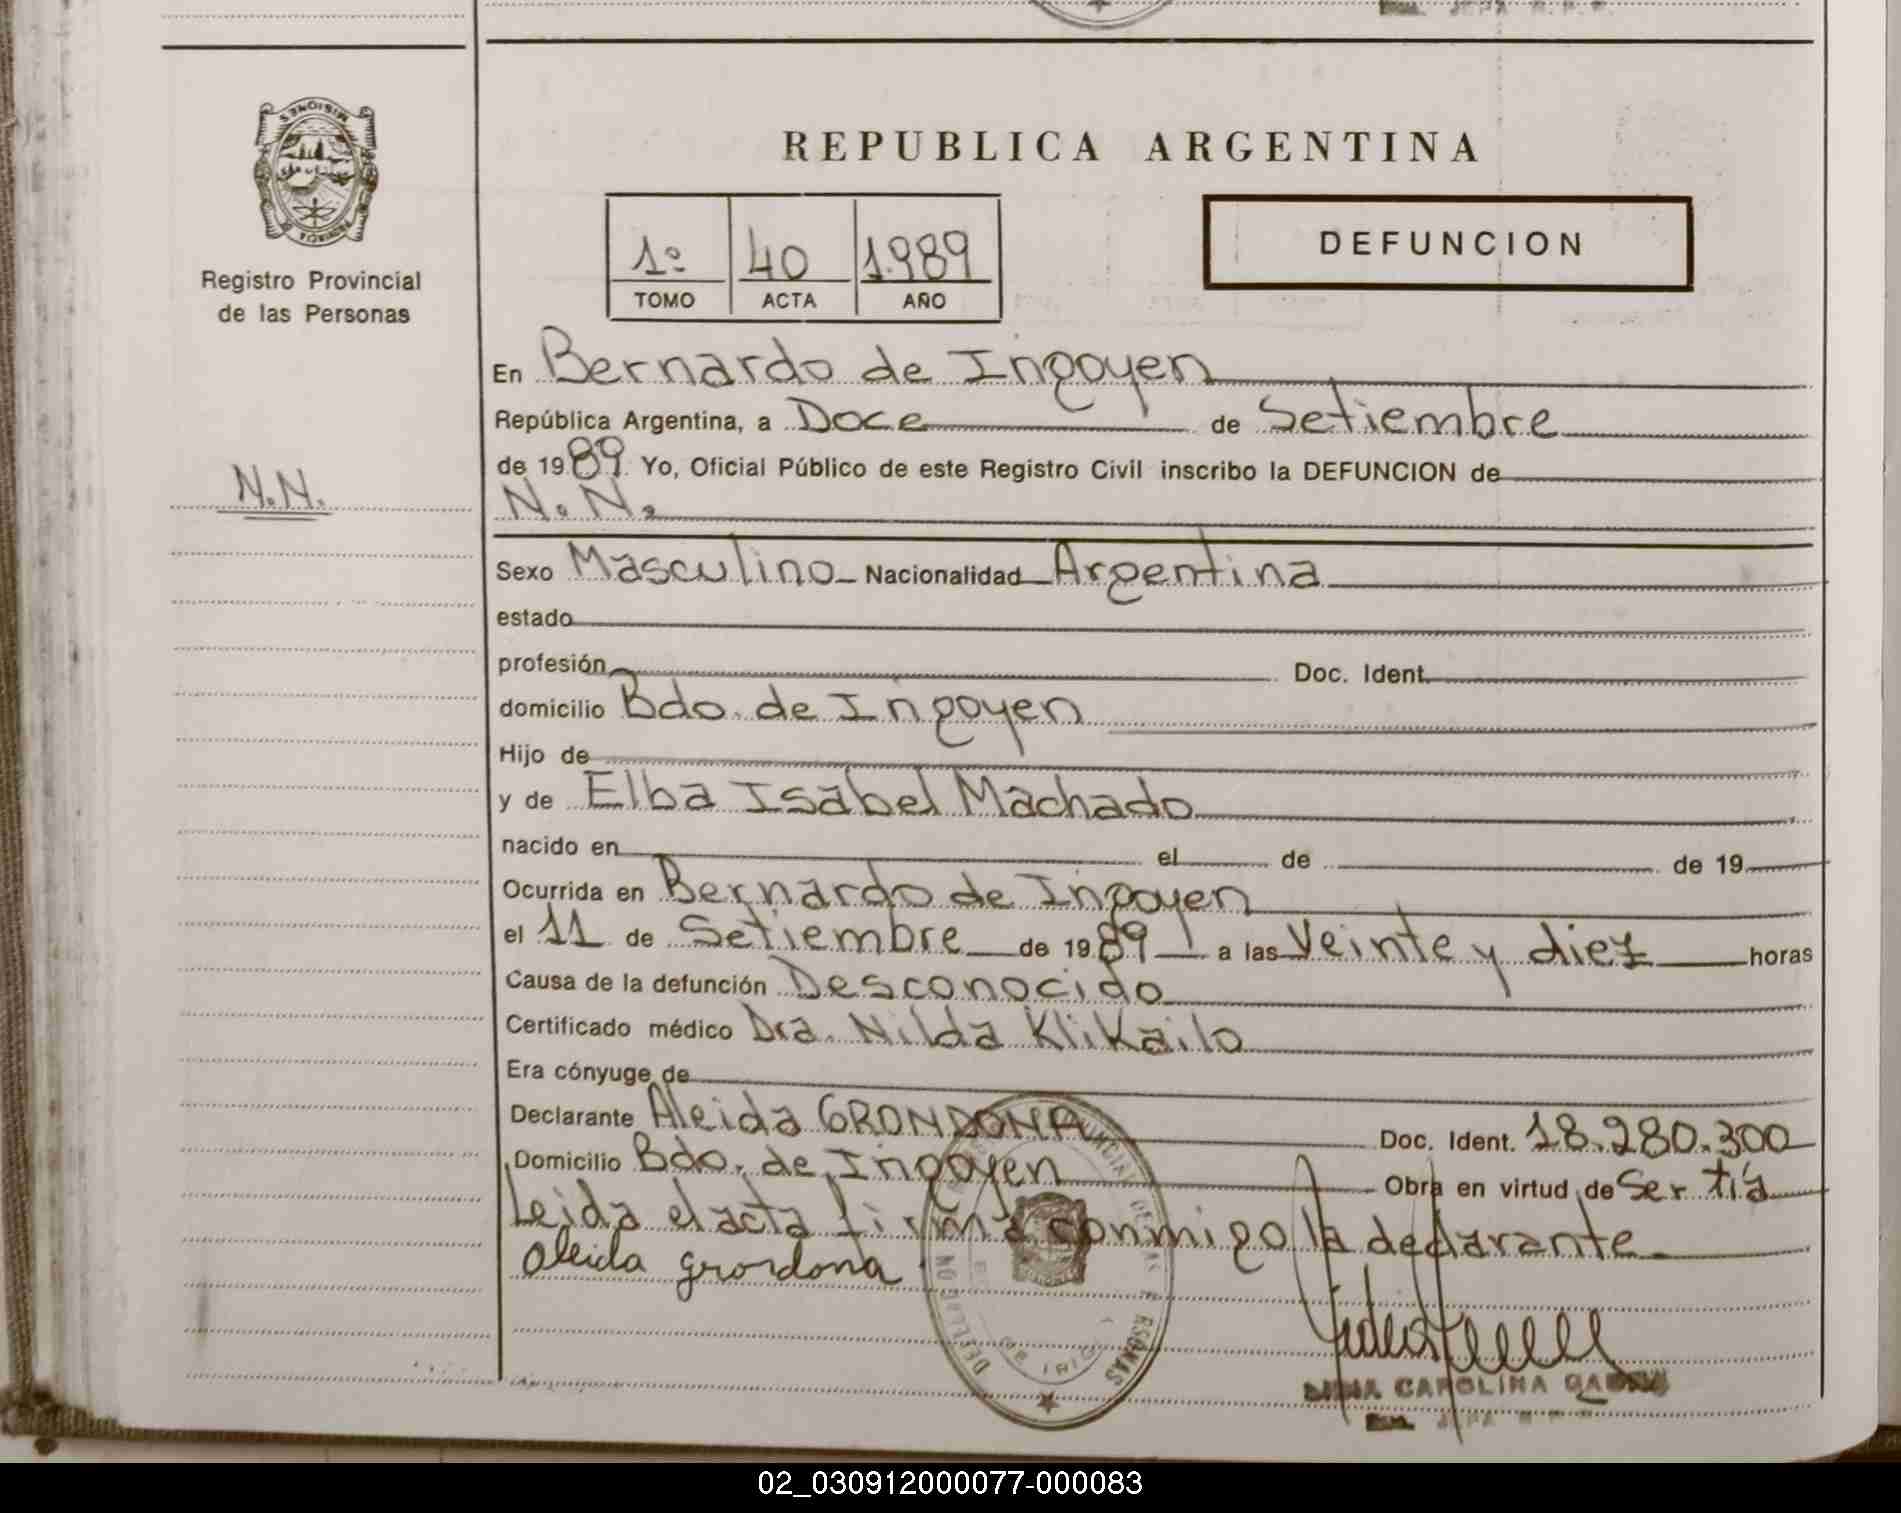 MISIONES
PROVINCIA DE
Registro Provincial
de las Personas
N.N.
REPUBLICA ARGENTINA
1º 40 1.989
TOMO ACTA AÑO
DEFUNCION
En Bernardo de Irigoyen
República Argentina, a Doce de Setiembre
de 1989. Yo, Oficial Público de este Registro Civil inscribo la DEFUNCION de
N.N.
Sexo Masculino Nacionalidad Argentina
estado
profesión Doc. Ident.
domicilio Bdo. de Irigoyen
Hijo de
y de Elba Isabel Machado
nacido en el de de 19
Ocurrida en Bernardo de Irigoyen
el 11 de Setiembre de 1989 a las Veinte y diez horas
Causa de la defunción Desconocido
Certificado médico Dra. Nilda Klikailo
Era cónyuge de
Declarante Aleida GRONDONA Doc. Ident. 18.280.300
Domicilio Bdo. de Irigoyen Obra en virtud de Ser tía
Leida el acta firma conmigo la declarante
Aleida grondona
CAROLINA
02_030912000077-000083